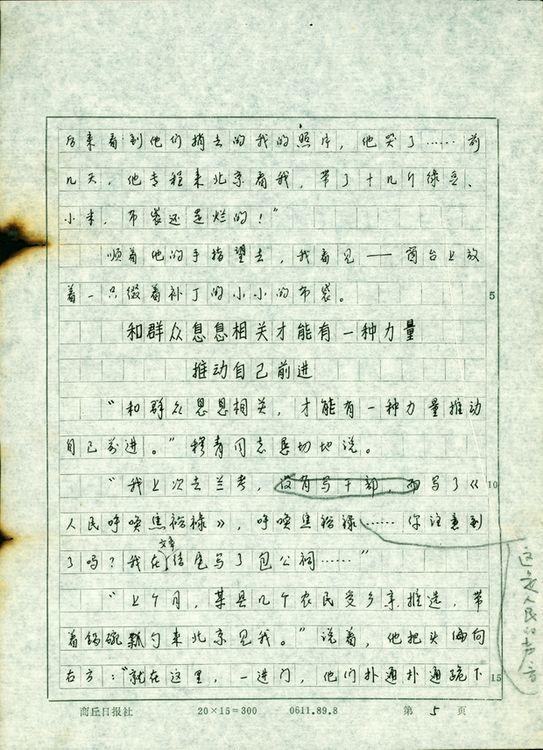 后来看到他们捎去的我的照片，他哭了……前
几天，他专程来北京看我，带了十几斤绿豆、
小米，布袋还是烂的！”
顺着他的手指望去，我看见——窗台上放
着一只缀着补丁的小小的布袋。
5
和群众息息相关才能有一种力量
推动自己前进
“和群众息息相关，才能有一种力量推动
自己前进。”穆青同志恳切地说。
“我上次去兰考，没有写干部，而写了《
10
人民呼唤焦裕禄》，呼唤焦裕禄……你注意到
了吗？我在文章结尾写了包公祠……”
这是人民的声音
“上个月，某县几个农民受乡亲推选，带
着锅碗瓢勺来北京见我。”说着，他把头偏向
右方：“就在这里，一进门，他们扑通扑通跪下
15
商丘日报社 20×15=300 0611.89.8 第 5 页